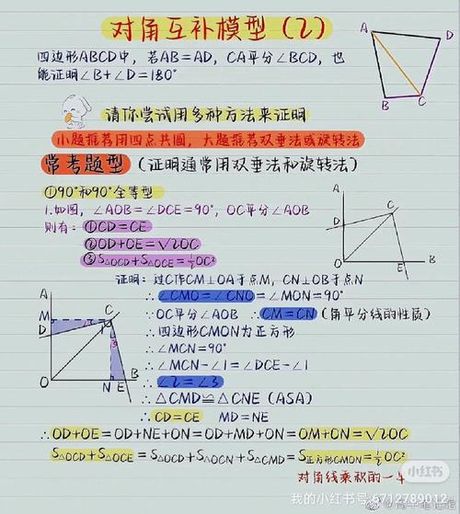 对角互补模型(2)
四边形ABCD中，若AB=AD，CA平分∠BCD，也
能证明∠B+∠D=180°
A
D
B
C
请你尝试用多种方法来证明
小题推荐用四点共圆，大题推荐双垂法或旋转法
常考题型(证明通常用双垂法和旋转法)
①90°和90°全等型
1.如图，∠AOB=∠DCE=90°，OC平分∠AOB
则有：①CD=CE
②OD+OE=√2OC
③S△OCD+S△OCE=½OC²
A
C
D
O
E
B
证明：过C作CM⊥OA于点M，CN⊥OB于点N
∴∠CMO=∠CNO=∠MON=90°
∵OC平分∠AOB ∴CM=CN(角平分线的性质)
∴四边形CMON为正方形
∴∠MCN=90°
∴∠MCN-∠1=∠DCE-∠1
∴∠2=∠3
∴△CMD≌△CNE(ASA)
∴CD=CE MD=NE
A
M
C
D
1
3
O
N
E
B
∴OD+OE=OD+NE+ON=OD+MD+ON=OM+ON=√2OC
S△OCD+S△OCE=S△OCD+S△OCN+S△CMD=S正方形CMON=½OC²
对角线乘积的一半
小红书
我的小红书号 6712789012